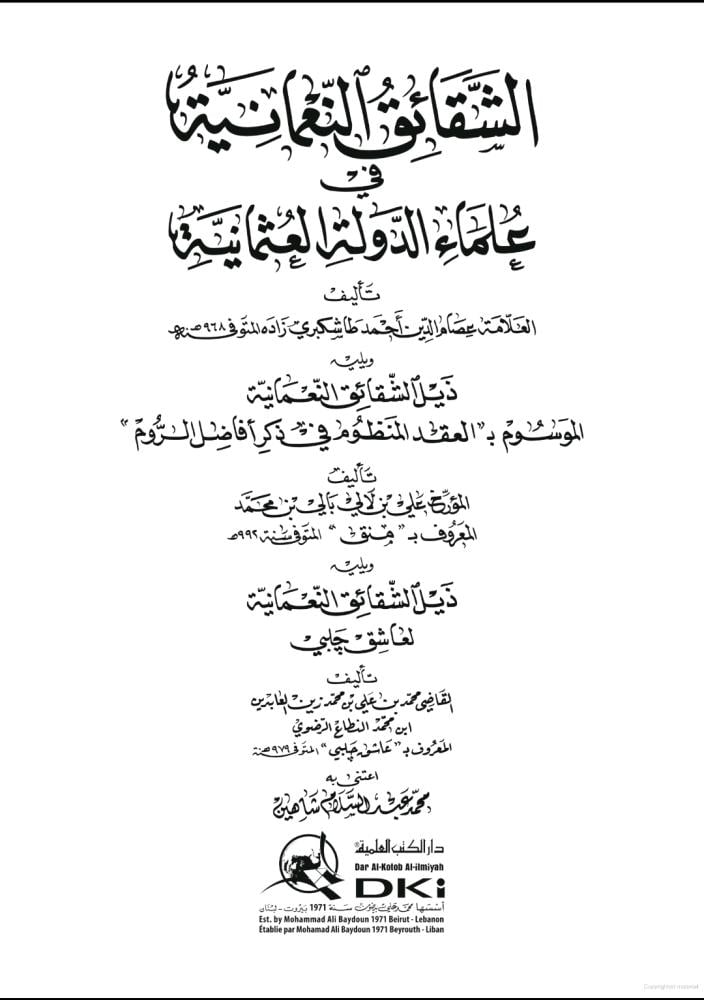 الشَّقَائِقُ النُّعْمَانِيَّةُ
فِي
عُلَمَاءِ الدَّوْلَةِ العُثْمَانِيَّةِ
تَأليف
العَلّامَة عِصَام الدِّين أَحْمَد طَاشكبري زَاده المتوفى سنة ٩٦٨ هـ
ويليه
ذَيْل الشَّقَائِق النُّعْمَانِيَّة
الموسُوم بـ "العقد المنظُوم في ذكر أفاضِل الرُّوم"
تَأليف
المؤرّخ عَلي بْن لَالي بَالي بْن محَمَّد
المعرُوف بـ "منق" المتوفى سَنة ٩٩٢ هـ
ويليه
ذَيْل الشَّقَائِق النُّعْمَانِيَّة
لعَاشِق چَلبي
تَأليف
القَاضي محمّد بن عَلي بن محمّد زين العَابدين
ابن محمّد النطاع الرضوي
المعرُوف بـ "عَاشق چلبي" المتوفى ٩٧٩ سنة
اعتنى به
محمّد عَبد السَّلَام شَاهين
دار الكتب العلمية®
Dar Al-Kotob Al-ilmiyah
DKi
أسسها محمد علي بيضون سنة 1971 بيروت - لبنان
Est. by Mohammad Ali Baydoun 1971 Beirut - Lebanon
Établie par Mohamad Ali Baydoun 1971 Beyrouth - Liban
Copyrighted material